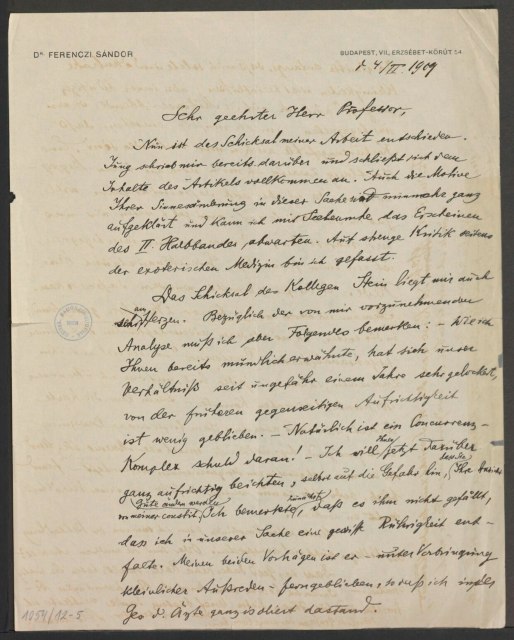 Dr. FERENCZI SÁNDOR
BUDAPEST, VII, ERZSÉBET-KÖRÚT 54
d. 4/II. 1909
Sehr geehrter Herr Professor,
Nun ist das Schicksal meiner Arbeit entschieden.
Jung schrieb mir bereits darüber und schließt sich dem
Inhalte des Artikels vollkommen an. Auch die Motive
Ihrer Sinnesänderung in dieser Sache sind nunmehr ganz
aufgeklärt und kann ich mit Seelenruhe das Erscheinen
des II Halbbandes abwarten. Auf strenge Kritik seitens
der exoterischen Medizin bin ich gefasst.
Das Schicksal des Kollegen Stein liegt mir auch
am Herzen. Bezüglich der von mir vorzunehmenden
Analyse muß ich aber Folgendes bemerken: – Wie ich
Ihnen bereits mündlich erwähnte, hat sich unser
Verhältniß seit ungefähr einem Jahre sehr gelockert,
von der früheren gegenseitigen Aufrichtigkeit
ist wenig geblieben. – Natürlich ist ein Concurrenz-
Komplex schuld daran! – Ich will Ihnen jetzt darüber
ganz aufrichtig beichten, selbst auf die Gefahr hin, dass Sie Ihre Ansicht
in meiner constit. Güte ändern werden. Ich bemerkte zunächst, daß es ihm nicht gefällt,
daß ich in unserer Sache eine gewisse Rührigkeit ent-
falte. Meinen beiden Vorträgen ist er – unter Vorbringung
kleinlicher Ausreden – ferngeblieben, so daß ich in der
Ges d. Ärzte ganz isoliert dastand.
1054/12-5